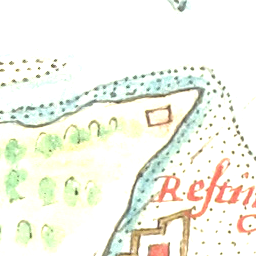 Restin
C